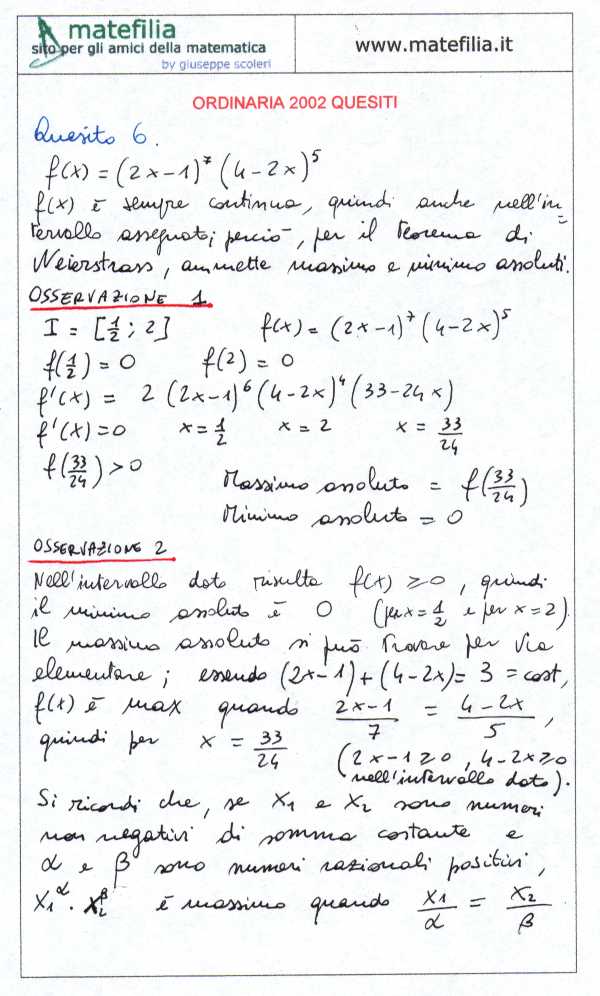 matefilia
sito per gli amici della matematica
by giuseppe scoleri
www.matefilia.it
ORDINARIA 2002 QUESITI
Quesito 6.
f(x) = (2x-1)^7 (4-2x)^5
f(x) è sempre continua, quindi anche nell'in=
tervallo assegnato; perciò, per il teorema di
Weierstrass, ammette massimo e minimo assoluti.
OSSERVAZIONE 1
I = [1/2 ; 2] f(x) = (2x-1)^7 (4-2x)^5
f(1/2) = 0 f(2) = 0
f'(x) = 2 (2x-1)^6 (4-2x)^4 (33-24x)
f'(x)=0 x=1/2 x=2 x=33/24
f(33/24)>0 Massimo assoluto = f(33/24)
Minimo assoluto = 0
OSSERVAZIONE 2
Nell'intervallo dato risulta f(x) ≥0, quindi
il minimo assoluto è 0 (per x=1/2 e per x=2).
Il massimo assoluto si può trovare per via
elementare; essendo (2x-1)+(4-2x)= 3 = cost,
f(x) è max quando (2x-1)/7 = (4-2x)/5 ,
quindi per x = 33/24 (2x-1≥0, 4-2x≥0
nell'intervallo dato).
Si ricordi che, se x1 e x2 sono numeri
non negativi di somma costante e
α e β sono numeri razionali positivi,
x1^α · x2^β è massimo quando x1/α = x2/β